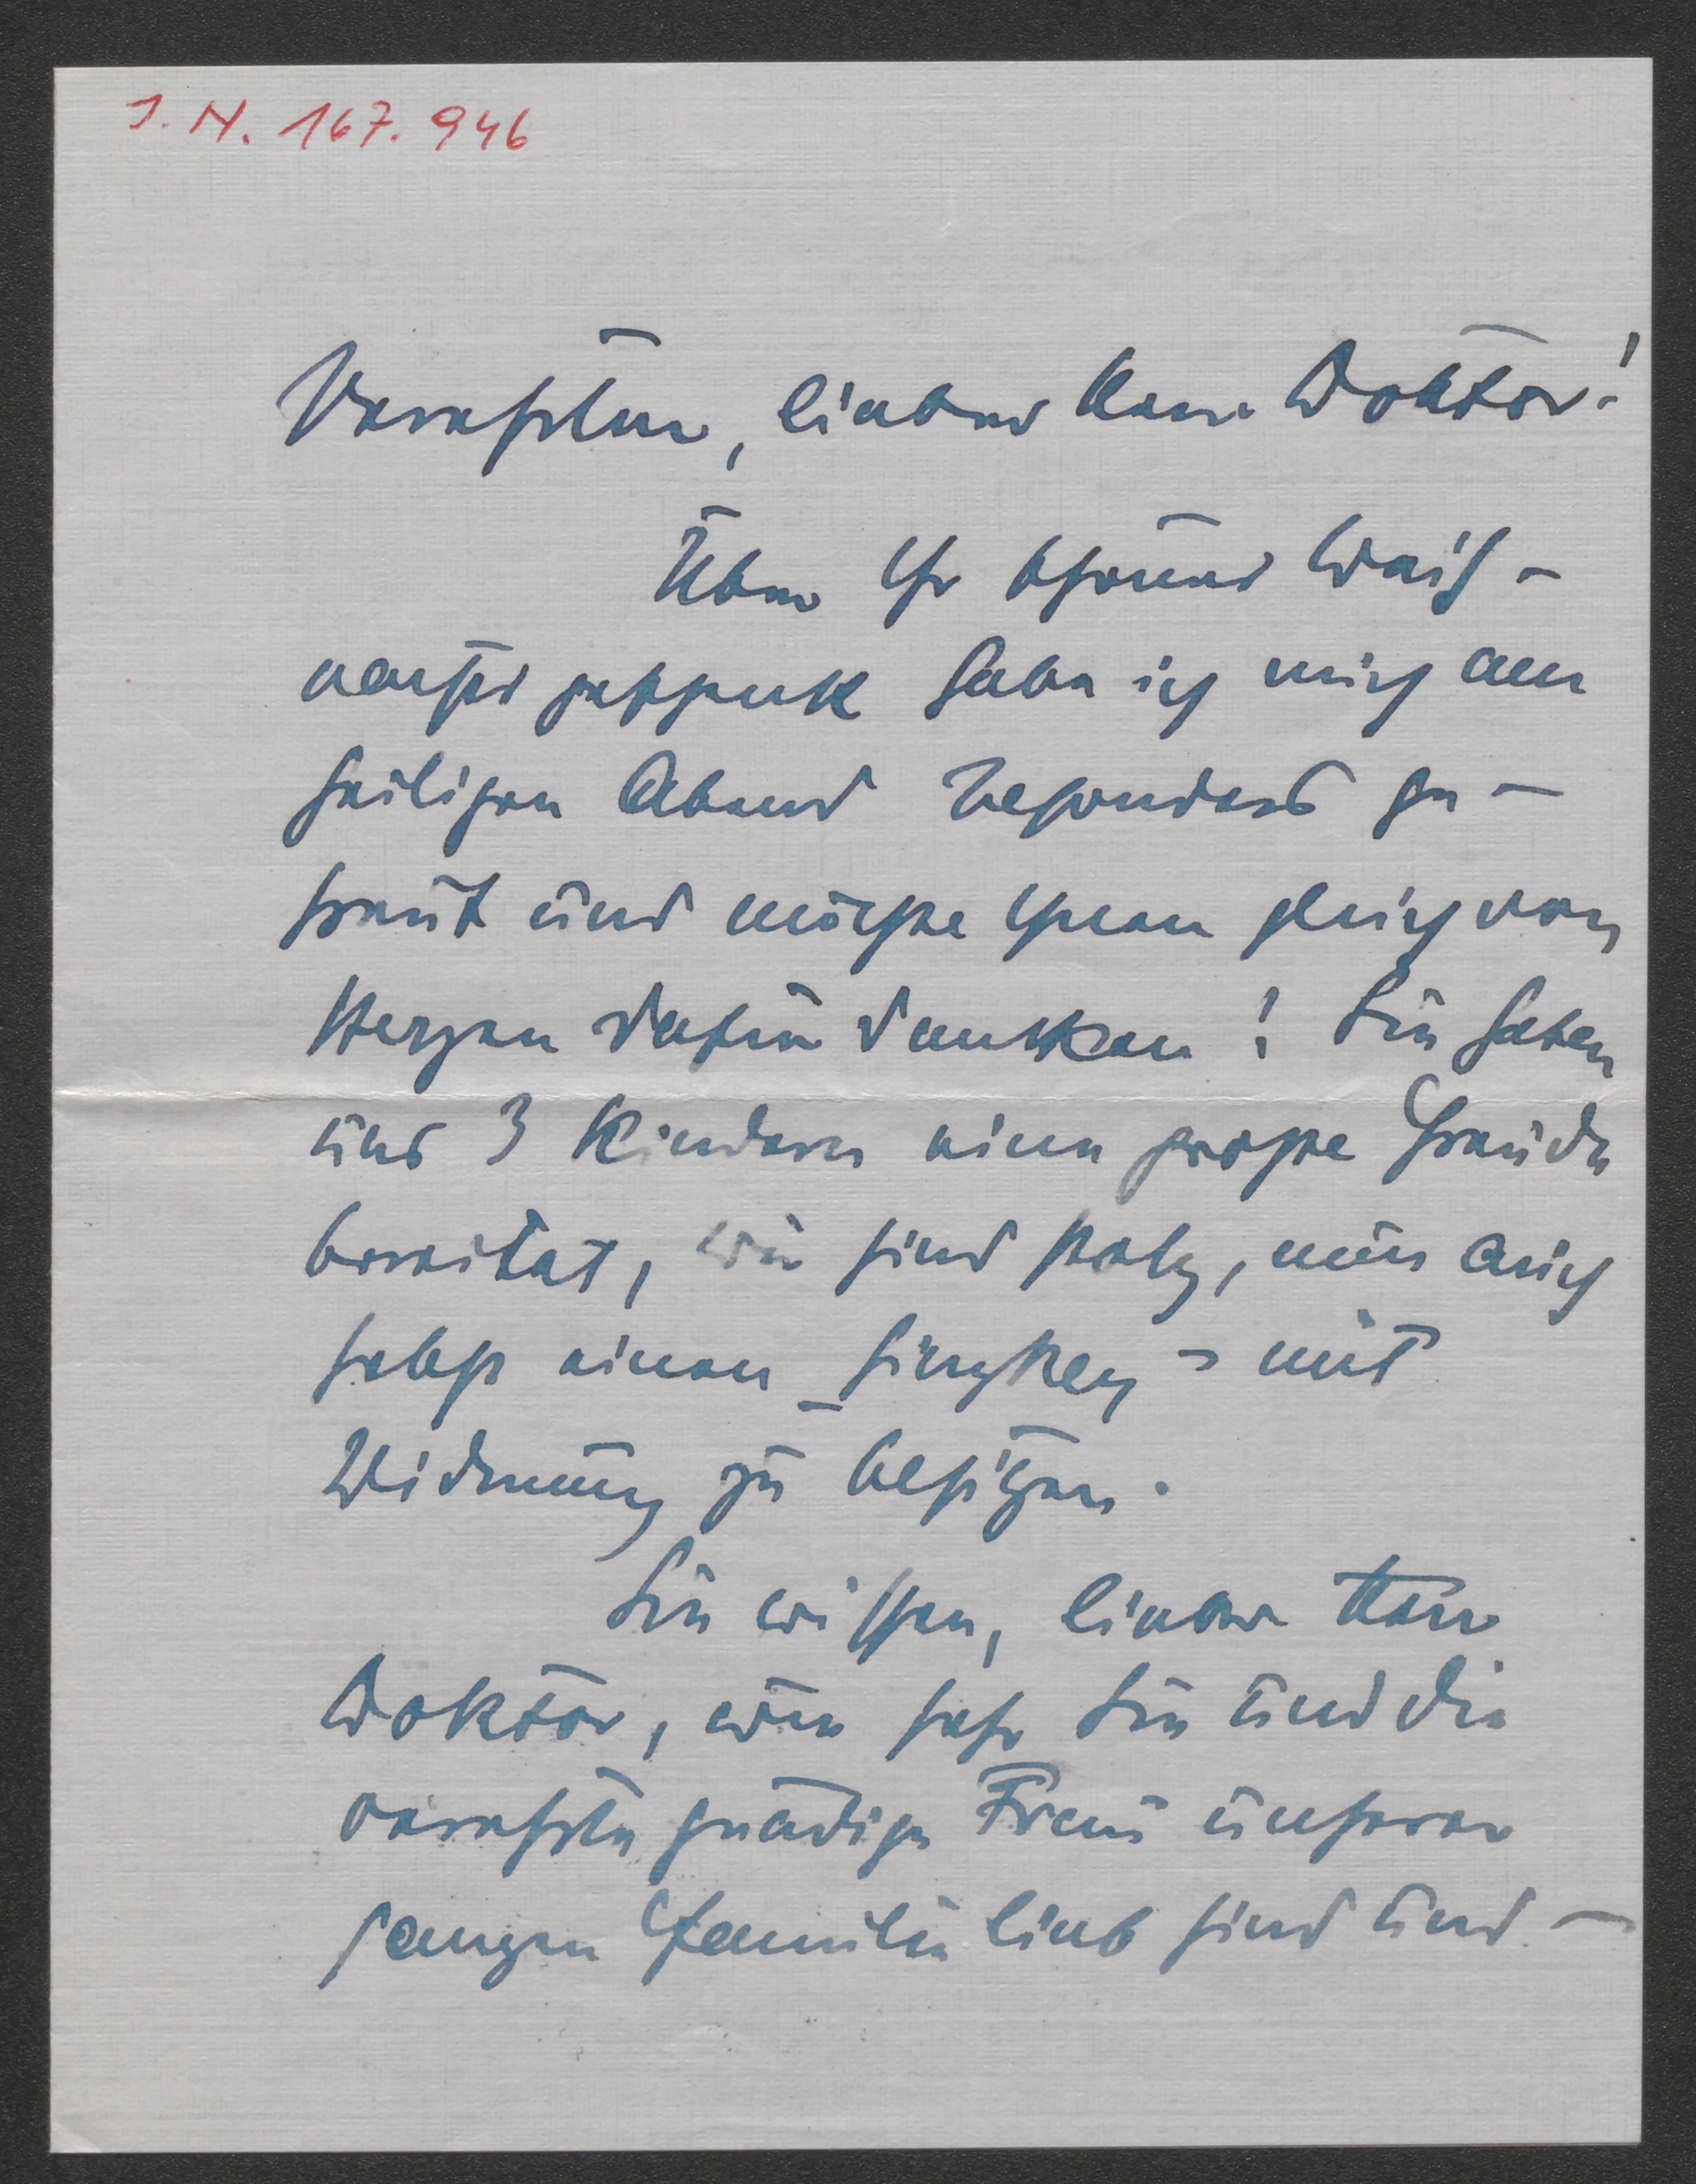 J. N. 167.946
Verehrter, lieber Herr Doktor!
Über Ihr schönes Weih-
nachtsgeschenk habe ich mich am
heiligen Abend besonders ge-
freut und möchte Ihnen gleich von
Herzen dafür danken! Sie haben
uns 3 Kindern eine große Freude
bereitet, wir sind stolz, nun auch
selbst einen Ginzkey - mit
Widmung zu besitzen.
Sie wissen, lieber Herr
Doktor, wie sehr Sie und die
verehrte gnädige Frau unserer
ganzen Familie lieb sind und -